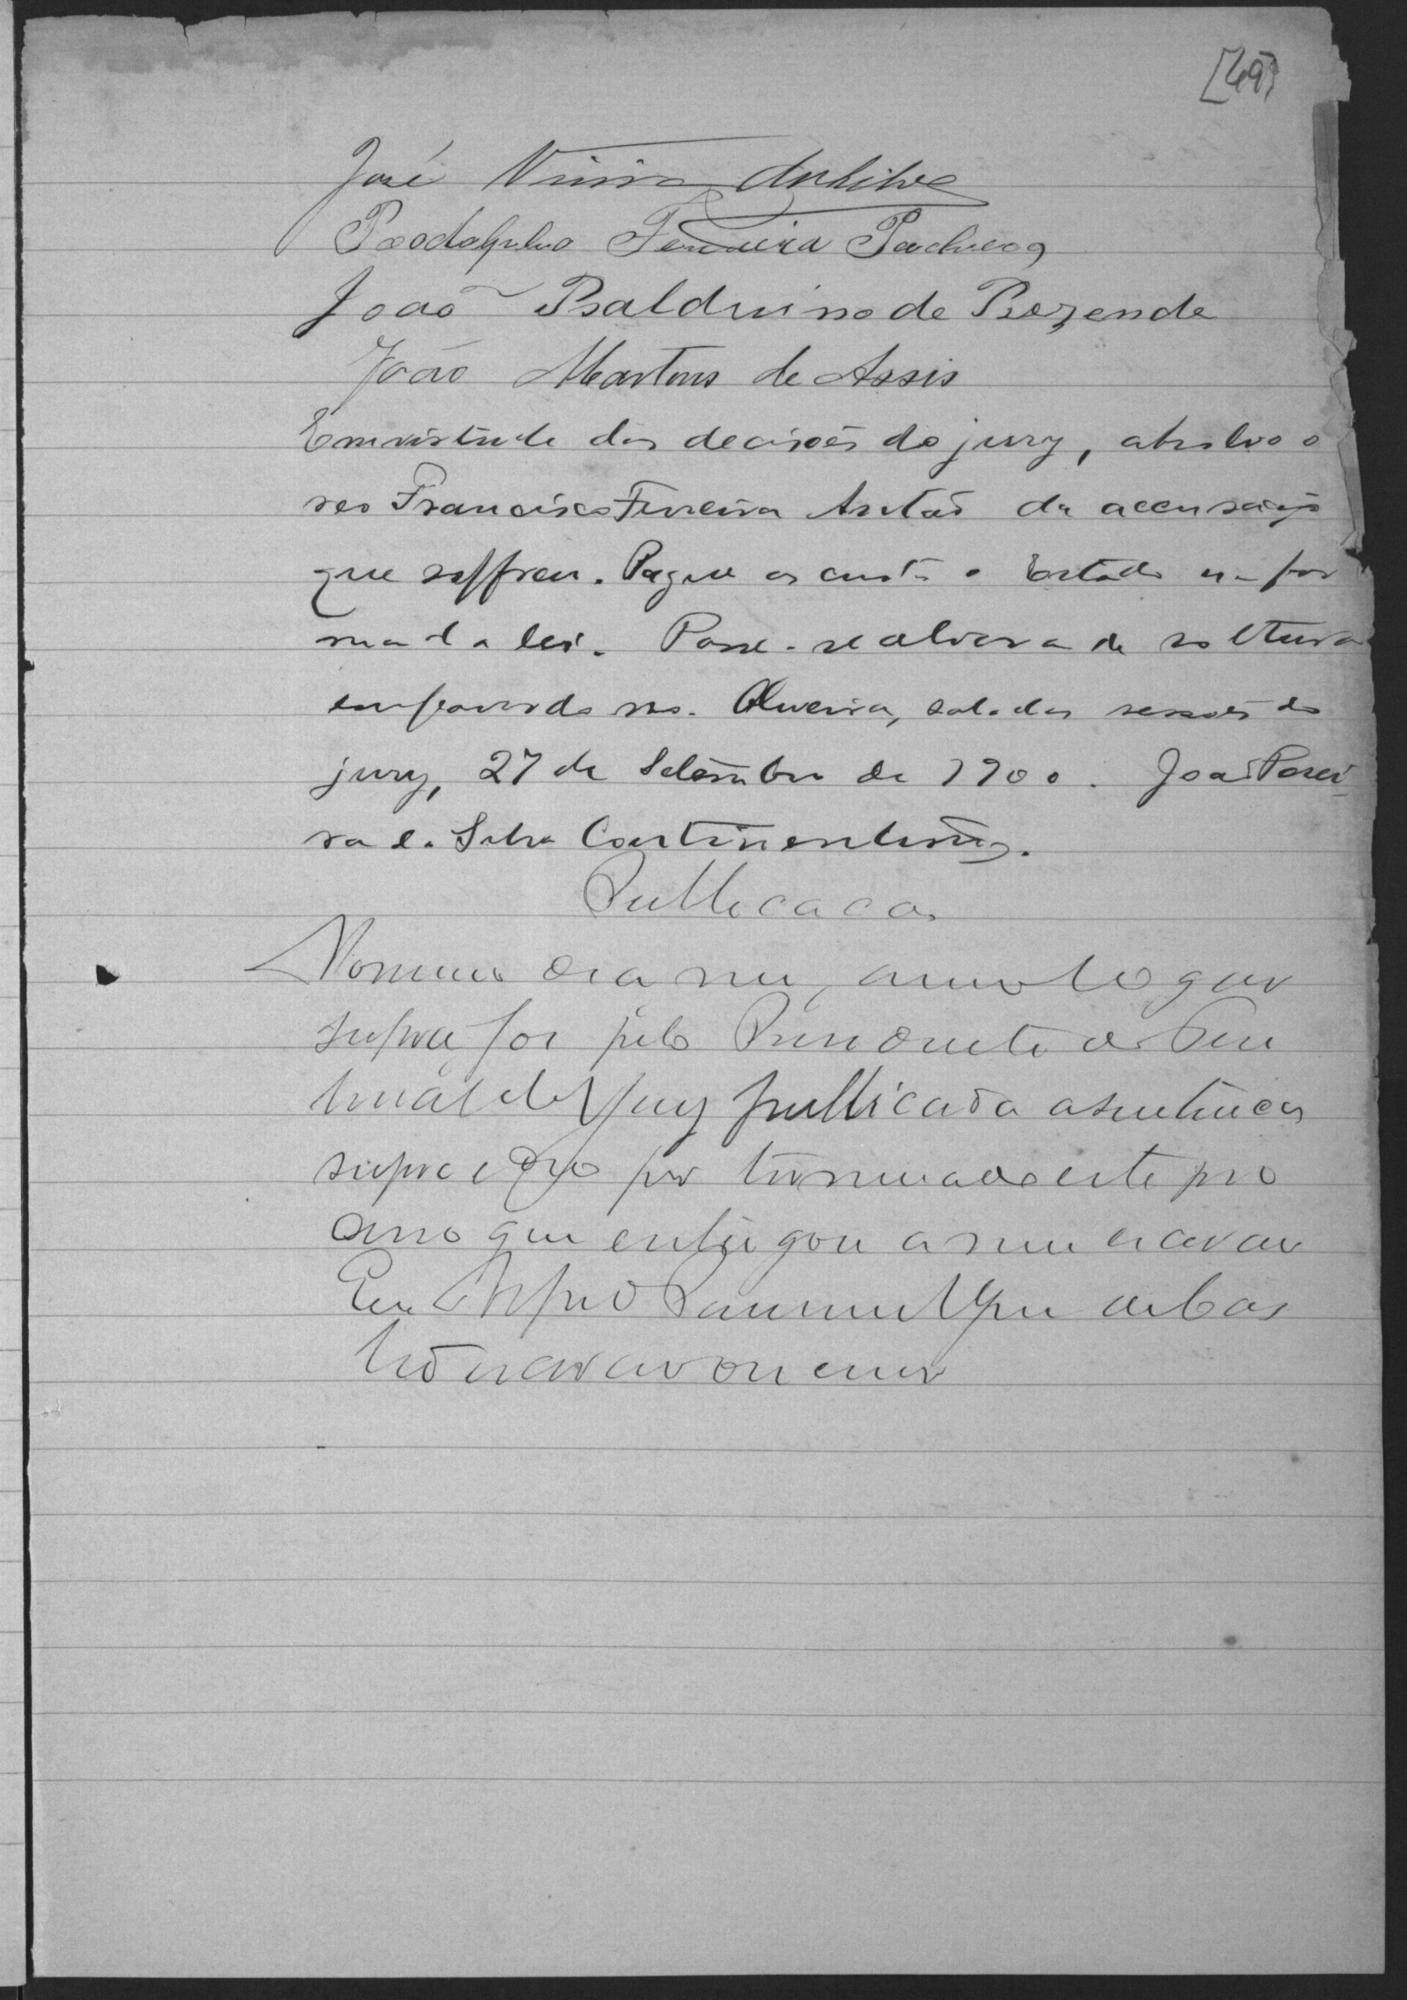 [49]
José Vieira da Silva
Rodolpho Ferreira Pacheco
João Balduino de Rezende
João Martins de Assis
Em virtude das decisões do jury, absolvo o
reo Francisco Ferreira Antão da accusação
que soffreu. Pague as custas o Estado na for
ma da lei. Passe-se alvará de soltura
em favor do reo. Oliveira, sala das sessões do
jury, 27 de Setembro de 1900. João Perei
ra da Silva Continentino.
Publicação
No mesmo dia mez, anno e lugar
supra foi pelo Presidente do Tri
bunal do Jury publicada a sentença
supra e deo por terminado este pro
cesso que entregou a mim escrivão
Eu
escrivão